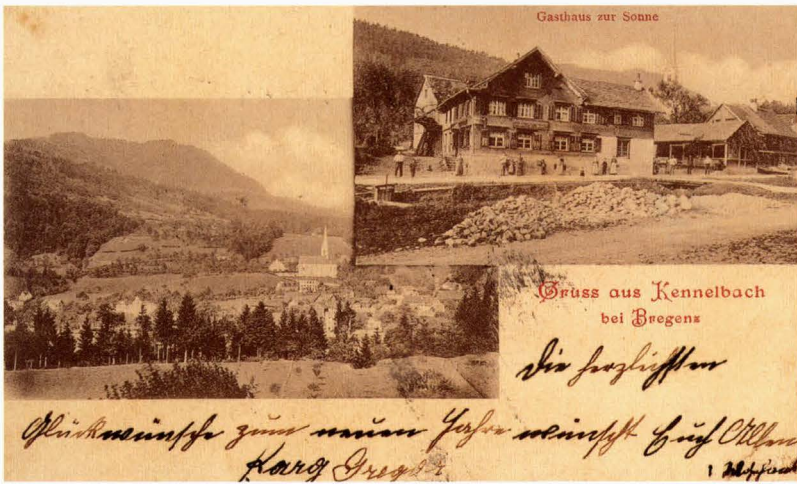 Gasthaus zur Sonne
Gruss aus Kennelbach
bei Bregenz
Die herzlichsten
Glückwünsche zum neuen Jahre wünscht Euch Allen
Karg Gregor